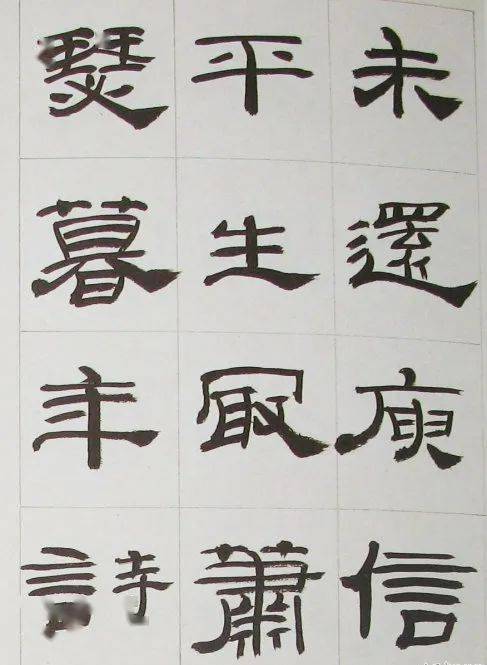 未還庾信
平生最蕭
瑟暮年詩